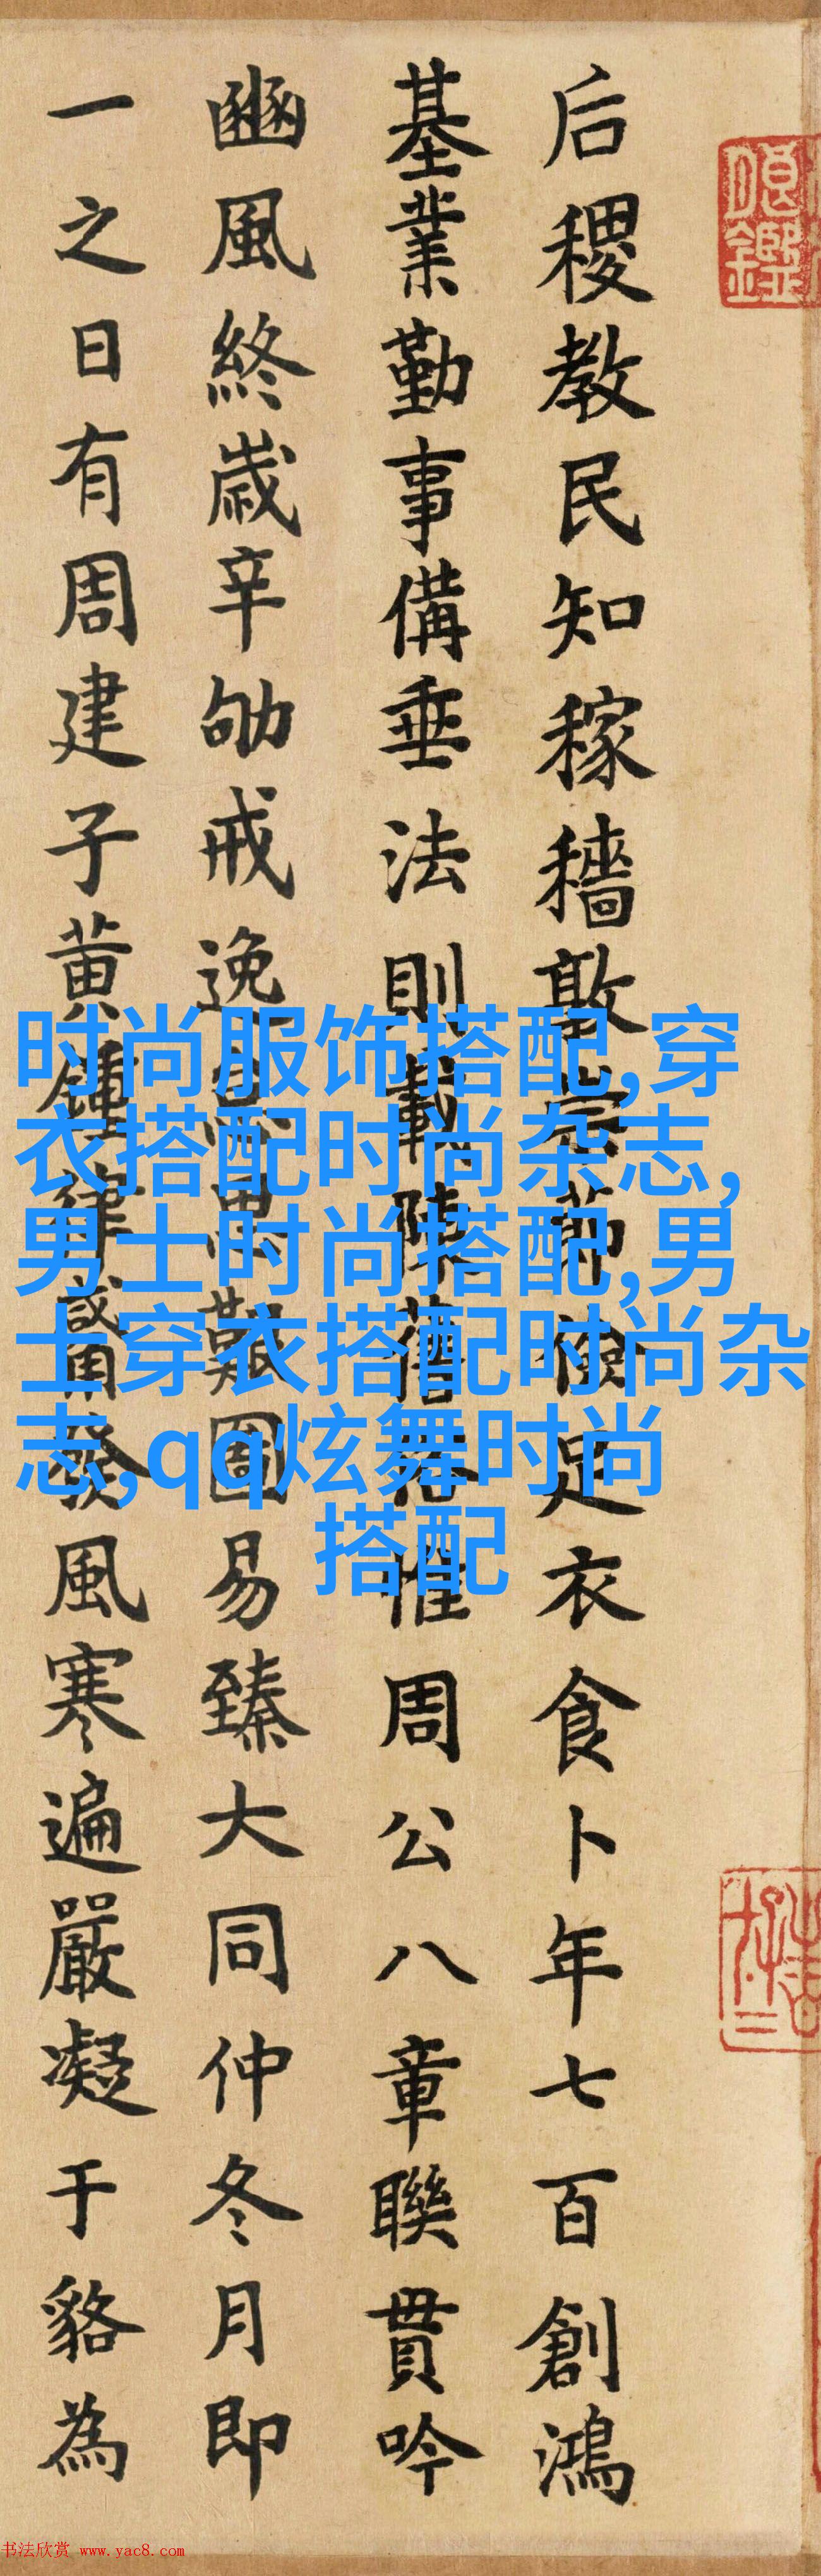 后稷教民知稼穡敦崇節儉足衣食卜年七百創鴻
基業勤事備垂法則載陳舊俗惟周公八章聯貫吟
豳風終歲辛劬戒逸思艱圖易臻大同仲冬月即
一之日有周建子黃鍾律觱發風寒遍嚴凝于貉為
时尚服饰搭配,穿
衣搭配时尚杂志,
男士时尚搭配,男
士穿衣搭配时尚杂
志,qq炫舞时尚
搭配
书法欣赏 www.yac8.com